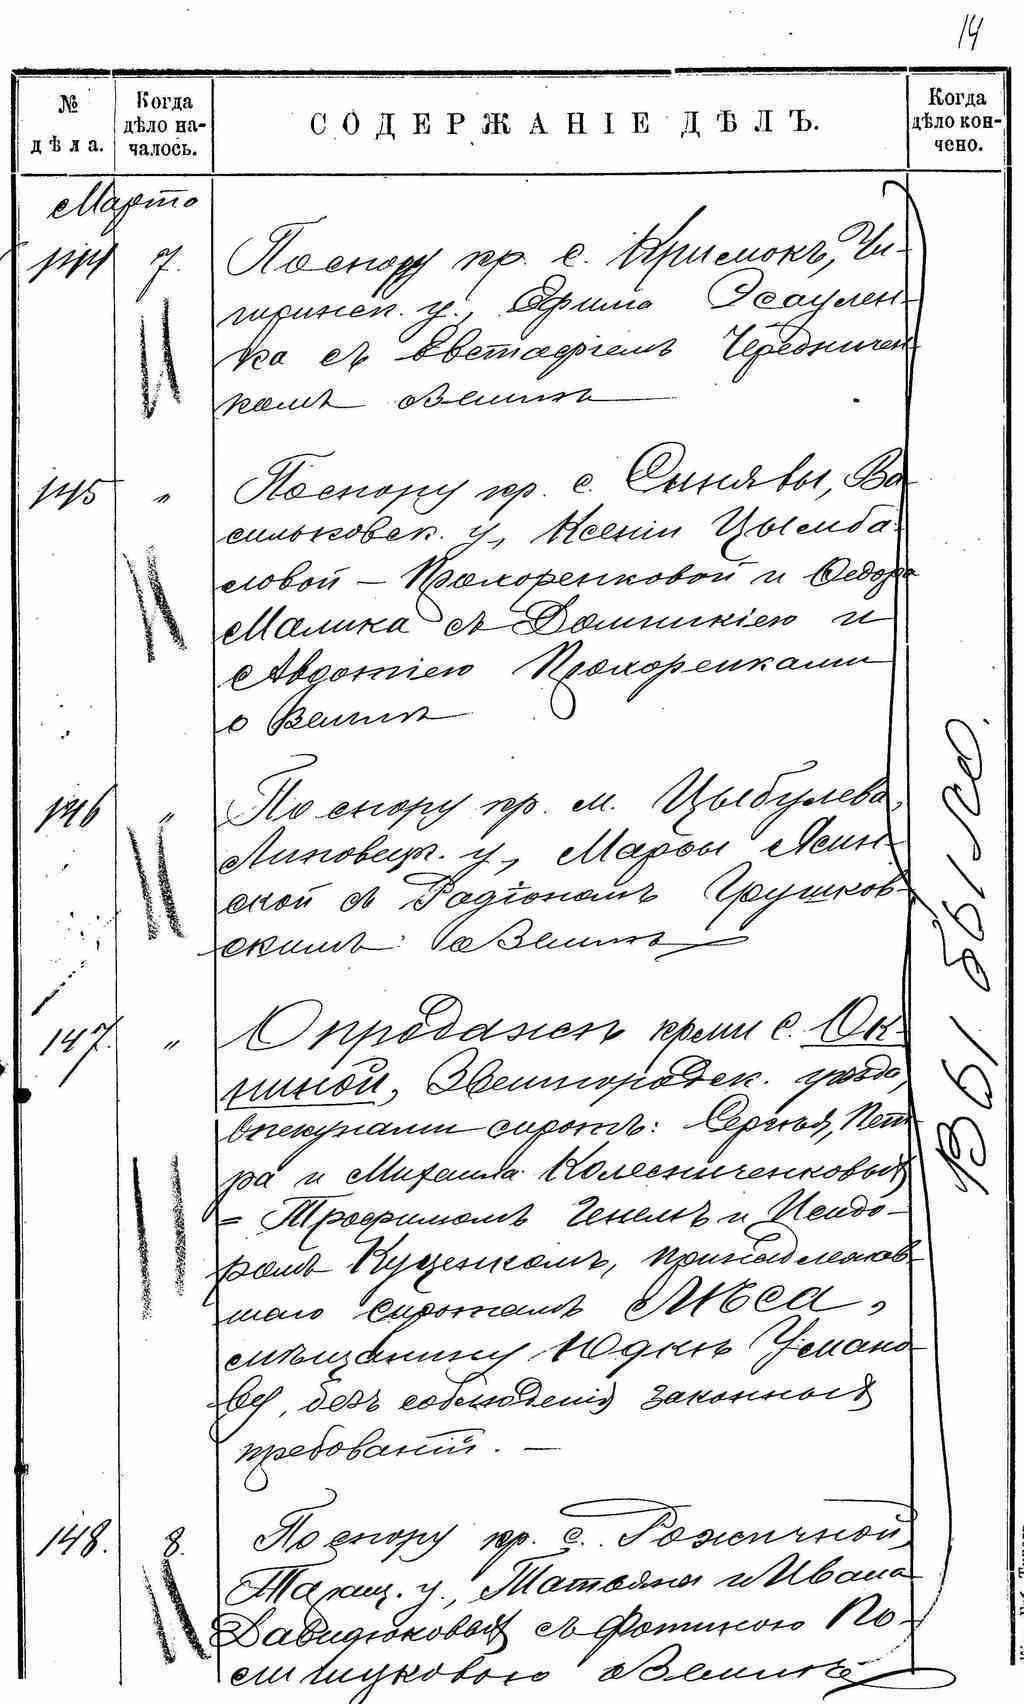 14
№ дѣла.
Когда дѣло началось.
СОДЕРЖАНІЕ ДѢЛЪ.
Когда дѣло кончено.
Марта
144 7. По спору кр. с. Кримокъ, Чи-
гиринск. у., Ефима Эсаулен-
ка съ Евстафіемъ Чередничен-
комъ о землѣ
145 " По спору кр. с. Синявы, Ва-
сильковск. у., Ксеніи Цымба-
ловой - Прохоренковой и Федора
Малика съ Домникіею и
Авдотіею Прохоренками
о землѣ
146 " По спору кр. м. Цыбулева,
Липовецк. у., Марфы Ясин-
ской съ Радіономъ Грушков-
скимъ о землѣ
147. " О продажѣ кр-ми с. Ок-
ниной, Звенигородск. уѣзда,
опекунами сиротъ: Сергѣя, Пет-
ра и Михаила Колесниченковыхъ
= Трофимомъ и Исидо-
ромъ Куценкомъ, принадлежав-
шаго сиротамъ лѣса,
мѣщанину Юдкѣ Умано-
ву, безъ соблюденія законныхъ
требованій. —
148. 8. По спору кр. с. Рожичной,
Таращ. у., Татьяны и Ивана
Давидюковыхъ съ Фотиною По-
лищуковою о землѣ
Выбыло.